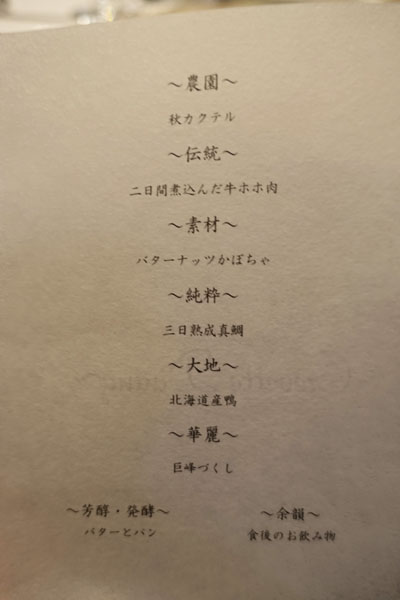 ～農園～
秋カクテル
～伝統～
二日間煮込んだ牛ホホ肉
～素材～
バターナッツかぼちゃ
～純粋～
三日熟成真鯛
～大地～
北海道産鴨
～華麗～
巨峰づくし
～芳醇・発酵～
バターとパン
～余韻～
食後のお飲み物